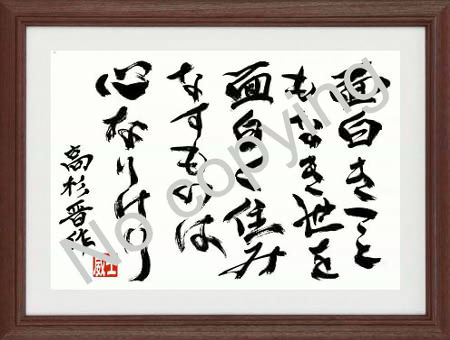 面白きこと
もなき世を
面白く住み
なすものは
心なりけり
高杉晋作
No copying